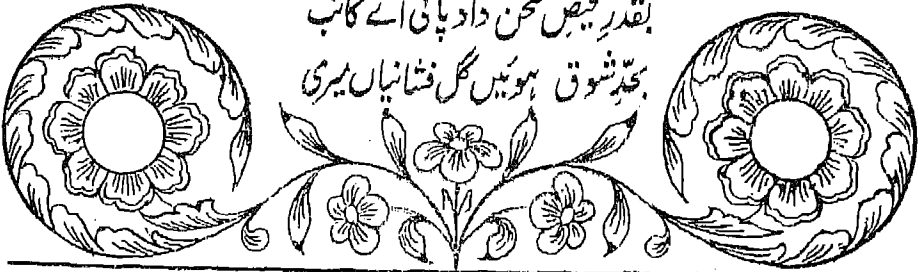 بقدرِ فیضِ سخن داد پائی اے کاتب
بحدِّ شوق ہوئیں گل فشانیاں میری